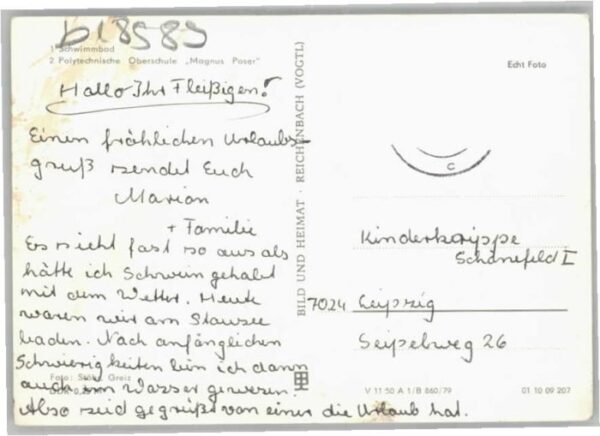 b18589
1 Schwimmbad
2 Polytechnische Oberschule „Magnus Poser"
Hallo Ihr Fleißigen!
Einen fröhlichen Urlaubs-
gruß sendet Euch
Marion
+ Familie
Es sieht fast so aus als
hätte ich Schwein gehabt
mit dem Wetter. Heute
waren wir am Stausee
baden. Nach anfänglichen
Schwierigkeiten bin ich dann
auch im Wasser gewesen.
Also seid gegrüßt von einer die Urlaub hat.
Foto: Greiz
DDR
BILD UND HEIMAT · REICHENBACH (VOGTL)
Echt Foto
C
Kinderkrippe
Schönefeld I
7024 Leipzig
Seipelweg 26
V 11 50 A 1/B 860/79
01 10 09 207